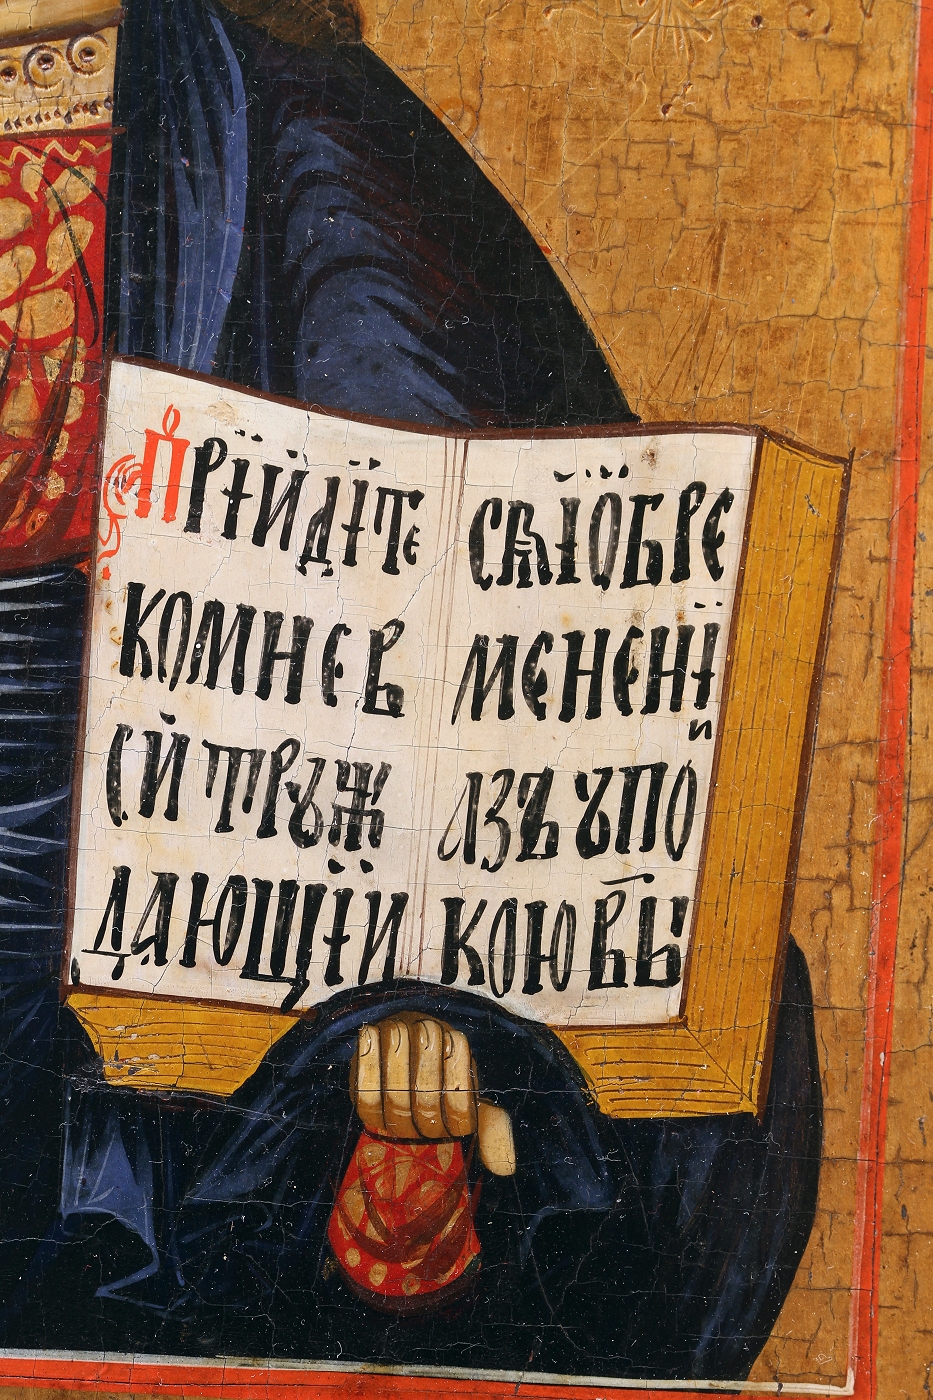 Прїйдїте
комнев
сй трꙋж
дающїи
сѣїобре
мененї
и
азъ ꙋпо
кою вы